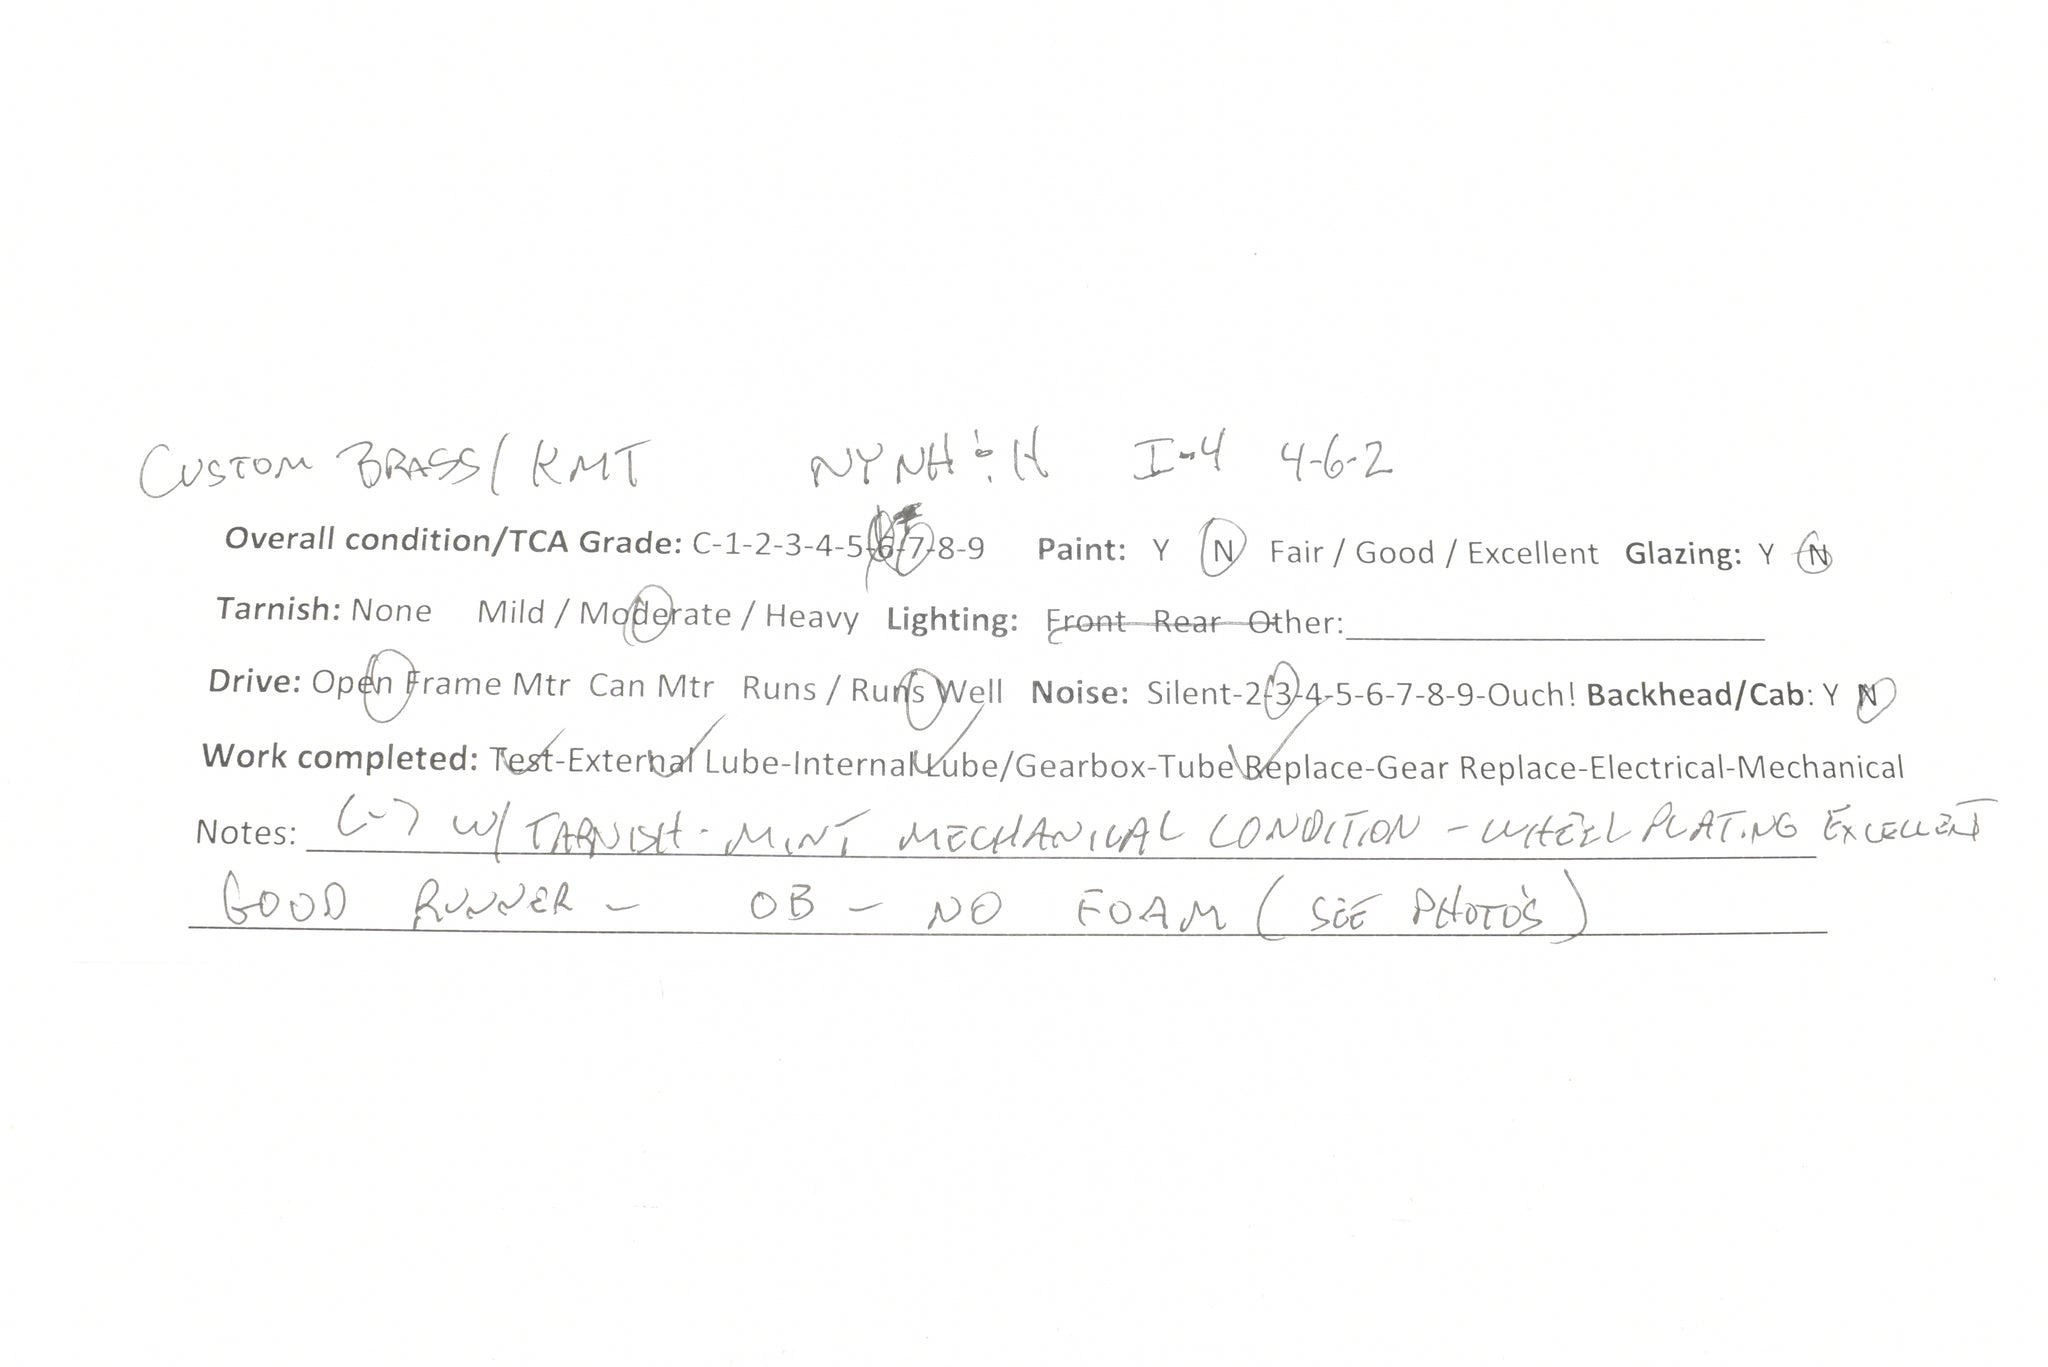 CUSTOM BRASS/KMT NYNH&H I-4 4-6-2
Overall condition/TCA Grade: C-1-2-3-4-5-6-7-8-9 Paint: Y N Fair / Good / Excellent Glazing: Y N
Tarnish: None Mild / Moderate / Heavy Lighting: Front Rear Other:
Drive: Open Frame Mtr Can Mtr Runs / Runs Well Noise: Silent-2-3-4-5-6-7-8-9-Ouch! Backhead/Cab: Y N
Work completed: Test-External Lube-Internal Lube/Gearbox-Tube Replace-Gear Replace-Electrical-Mechanical
Notes: C-7 W/ TARNISH - MINT MECHANICAL CONDITION - WHEEL PLATING EXCELLENT
GOOD RUNNER - OB - NO FOAM (SEE PHOTO'S)